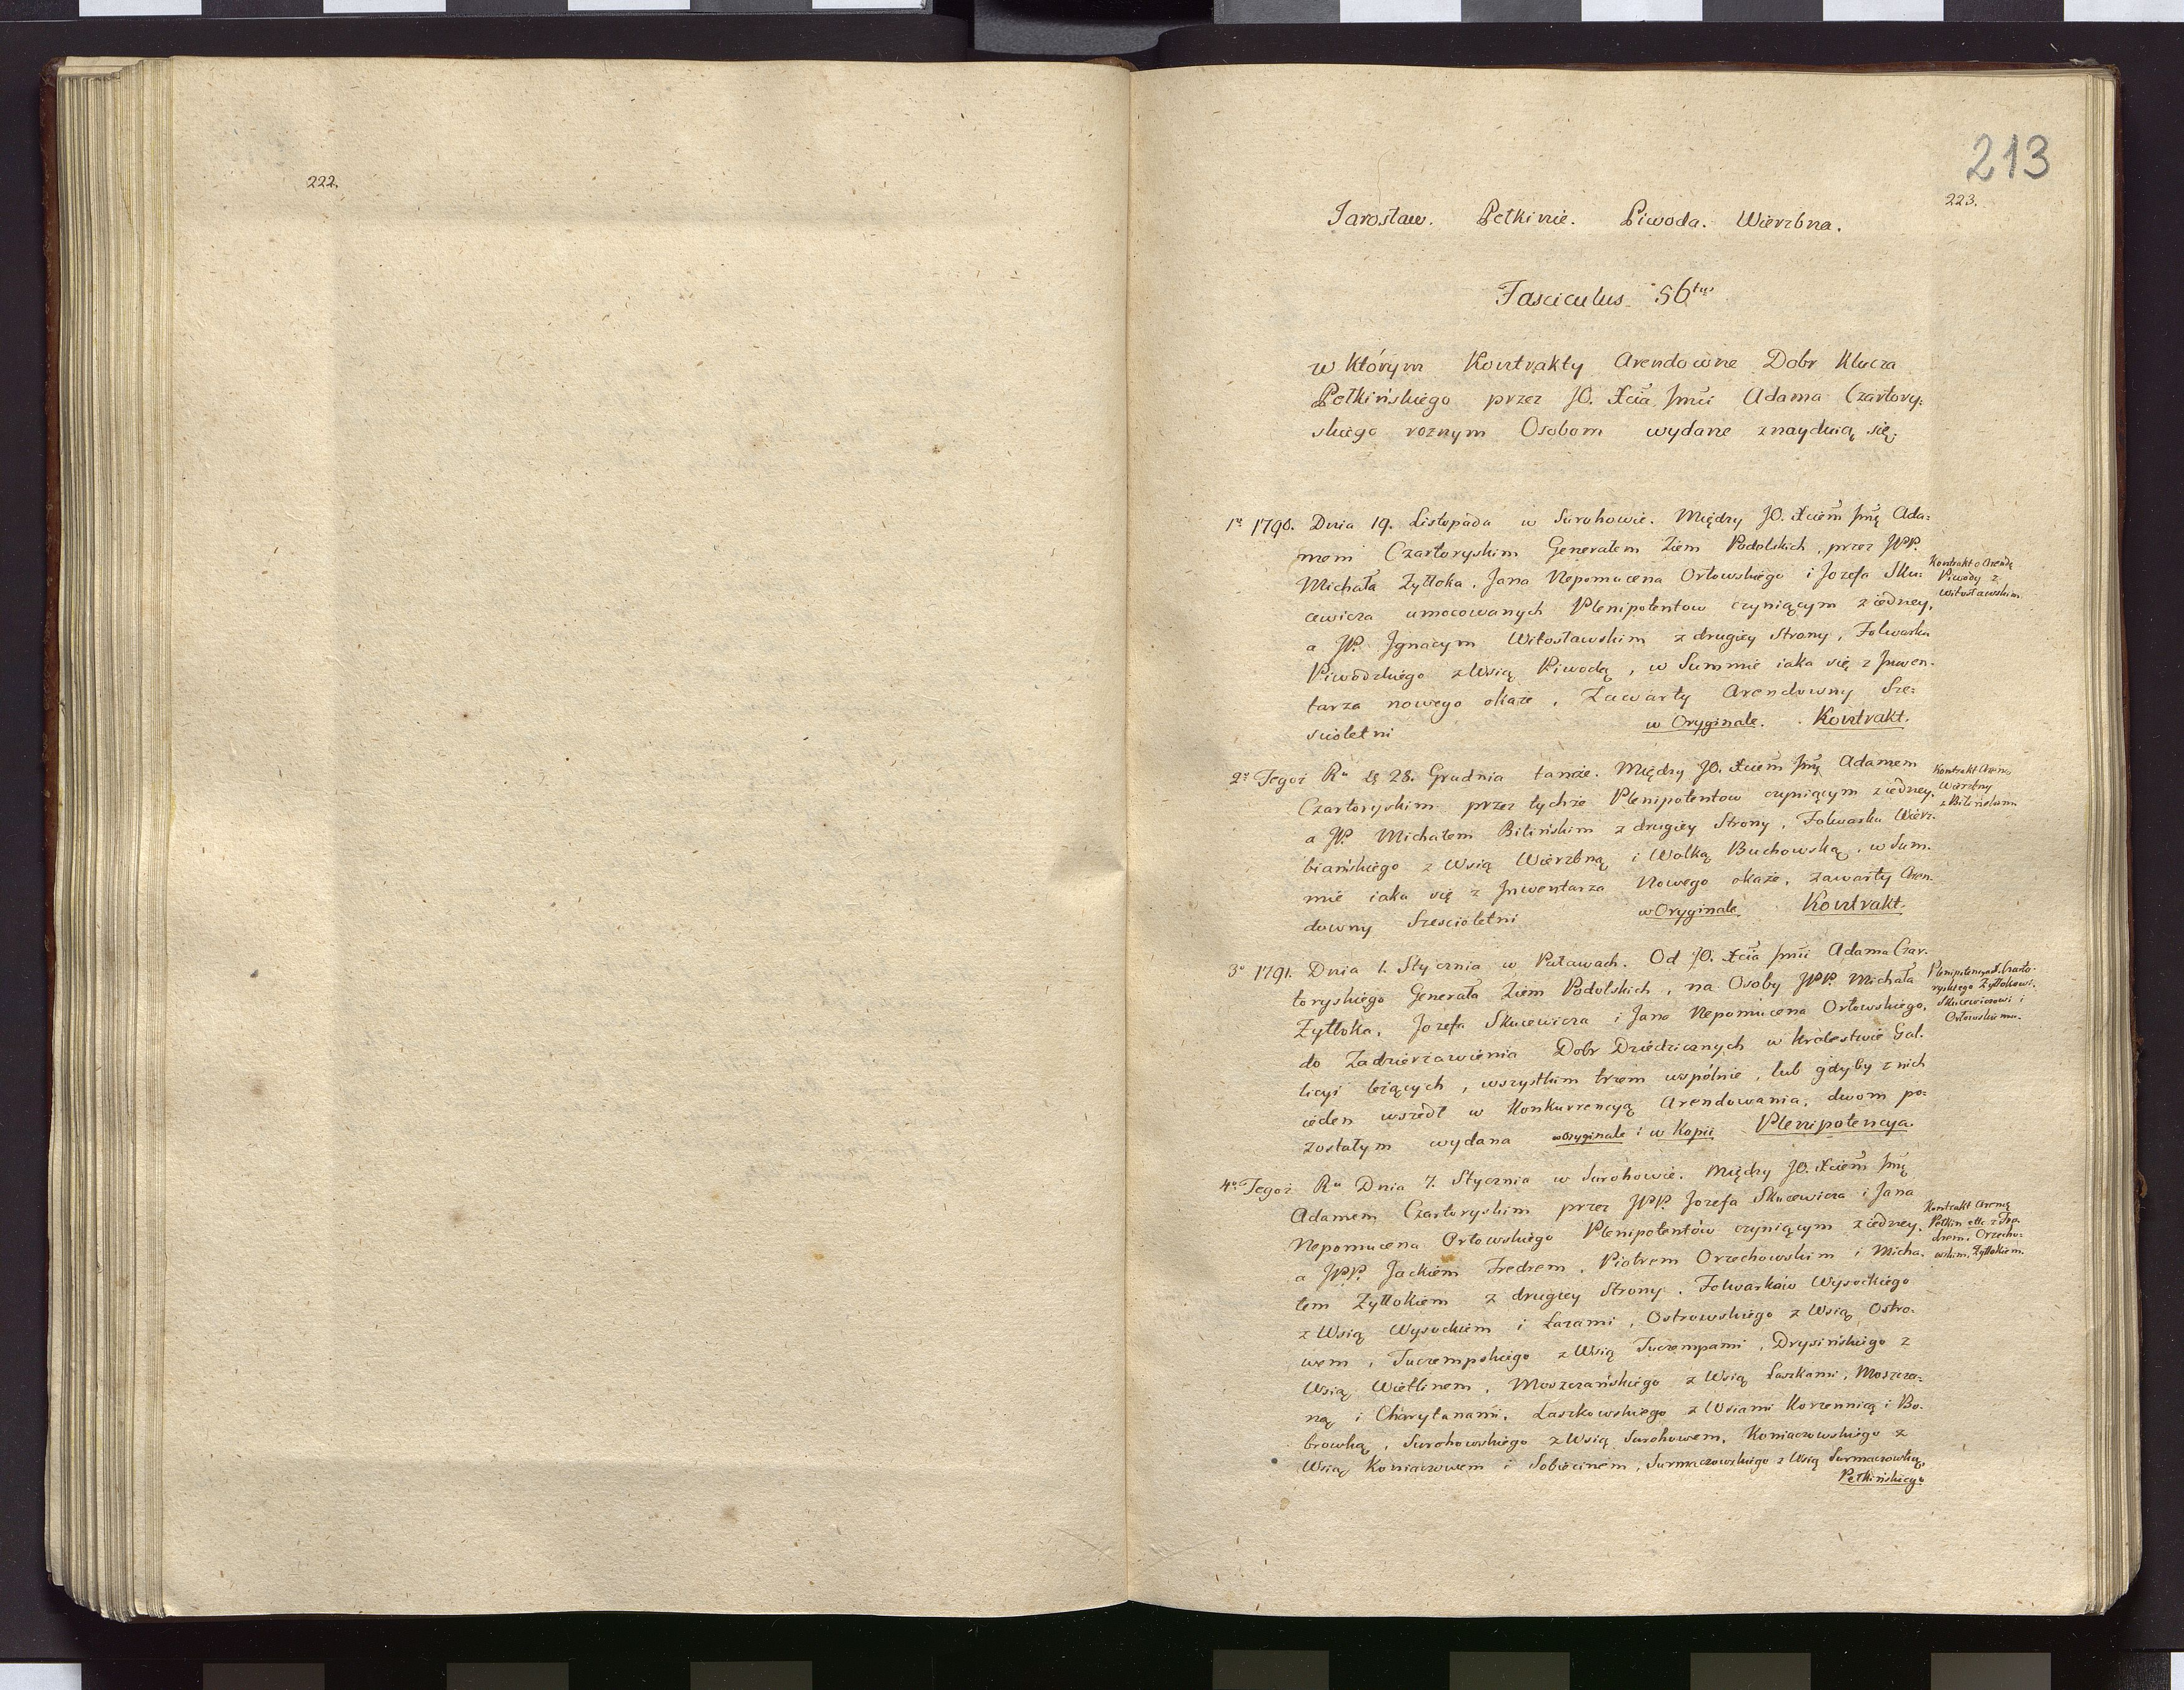 222.
213
223.
Jarosław. Pełkinie. Piwoda. Wierzbna.
Fasciculus 56tus
w Którym Kontrakty Arendowne Dobr Klucza
Pełkińskiego przez JO. Xcia Jmci Adama Czartory:
skiego roznym Osobom wydane znayduią się.
1o 1790. Dnia 19. Listopada w Surohowie. Między JO. Xciem Jmę Ada:
mem Czartoryskim Generałem Ziem Podolskich, przez JPP.
Michała Zyttoka, Jana Nepomucena Orłowskiego i Jozefa Sku:
cewicza umocowanych Plenipotentow czyniącym z iedney,
a JP. Jgnacym Witosławskim z drugiey Strony, Folwarku
Piwodzkiego z Wsią Piwodą, w Summie iaka się z Jnwen-
tarza nowego okaże, Zawarty Arendowny Sze:
scioletni w Oryginale. Kontrakt.
Kontrakt o Arendę
Piwody z
Witosławskim
2o Tegoż Ru 28. Grudnia tamże. Między JO. Xciem Jmę Adamem
Czartoryskim przez tychże Plenipotentow czyniącym z iedney,
a JP. Michałem Bilińskim z drugiey Strony, Folwarku Wierz-
biańskiego z Wsią Wierzbną i Wolką Buchowską, w Sum-
mie iaka się z Jnwentarza Nowego okaże, zawarty Aren-
downy Szescioletni w Oryginale Kontrakt.
Kontrakt Areny
Wierzbny
z Bilińskim
3o 1791. Dnia 1. Stycznia w Puławach. Od JO. Xcia Jmci Adama Czar-
toryskiego Generała Ziem Podolskich, na Osoby JPP. Michała
Zyttoka, Jozefa Skucewicza i Jana Nepomucena Orłowskiego,
do Zadzierzawienia Dobr Dziedzicznych w Krolestwie Gal-
licyi leżących, wszystkim trzem wspólnie, lub gdyby z nich
ieden wszedł w Konkurrencyą Arendowania, dwom po:
zostałym wydana w Oryginale i w Kopii Plenipotencya.
Plenipotencya X. Czarto-
ryskiego Zyttokowi,
Skucewiczowi i
Orłowskiemu.
4o Tegoż Ru Dnia 7. Stycznia w Surohowie. Między JO. Xciem Jmę
Adamem Czartoryskim przez JPP. Jozefa Skucewicza i Jana
Nepomucena Orłowskiego Plenipotentów czyniącym z iedney,
a JPP. Jackiem Fredrem, Piotrem Orzechowskim i Micha-
łem Zyttokiem z drugiey Strony, Folwarków Wysockiego
z Wsią Wysockiem i Łazami, Ostrowskiego z Wsią Ostro-
wem, Tuczempskiego z Wsią Tuczempami, Drysińskiego z
Wsią Wietlinem, Moszczańskiego z Wsią Łaszkami, Moszcza:
ną i Charytanami, Łaszkowskiego z Wsiami Korzennicą i Bo-
browką, Surohowskiego z Wsią Surohowem, Koniaczowskiego z
Wsią Koniaczowem i Sobiecinem, Surmaczowskiego z Wsią Surmaczowką,
Pełkińskiego
Kontrakt Areny
Pełkin etc z Fre-
drem, Orzecho-
wskim, Zyttokiem.